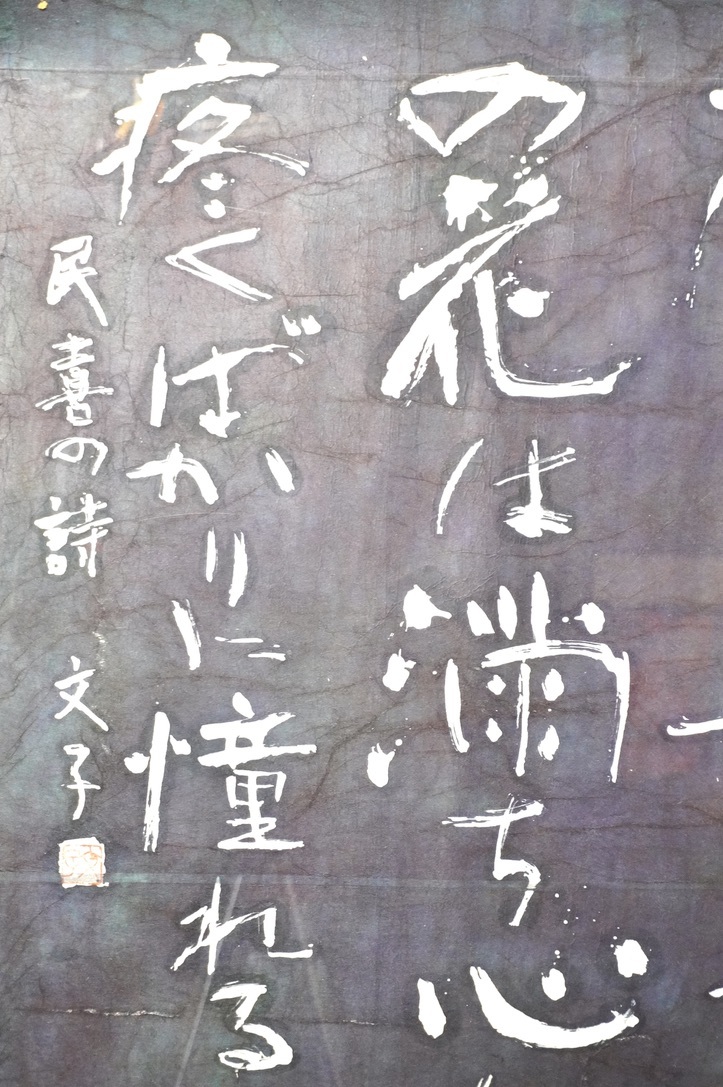 の花は満ち心
疼くばかりに憧れる
民喜の詩 文子